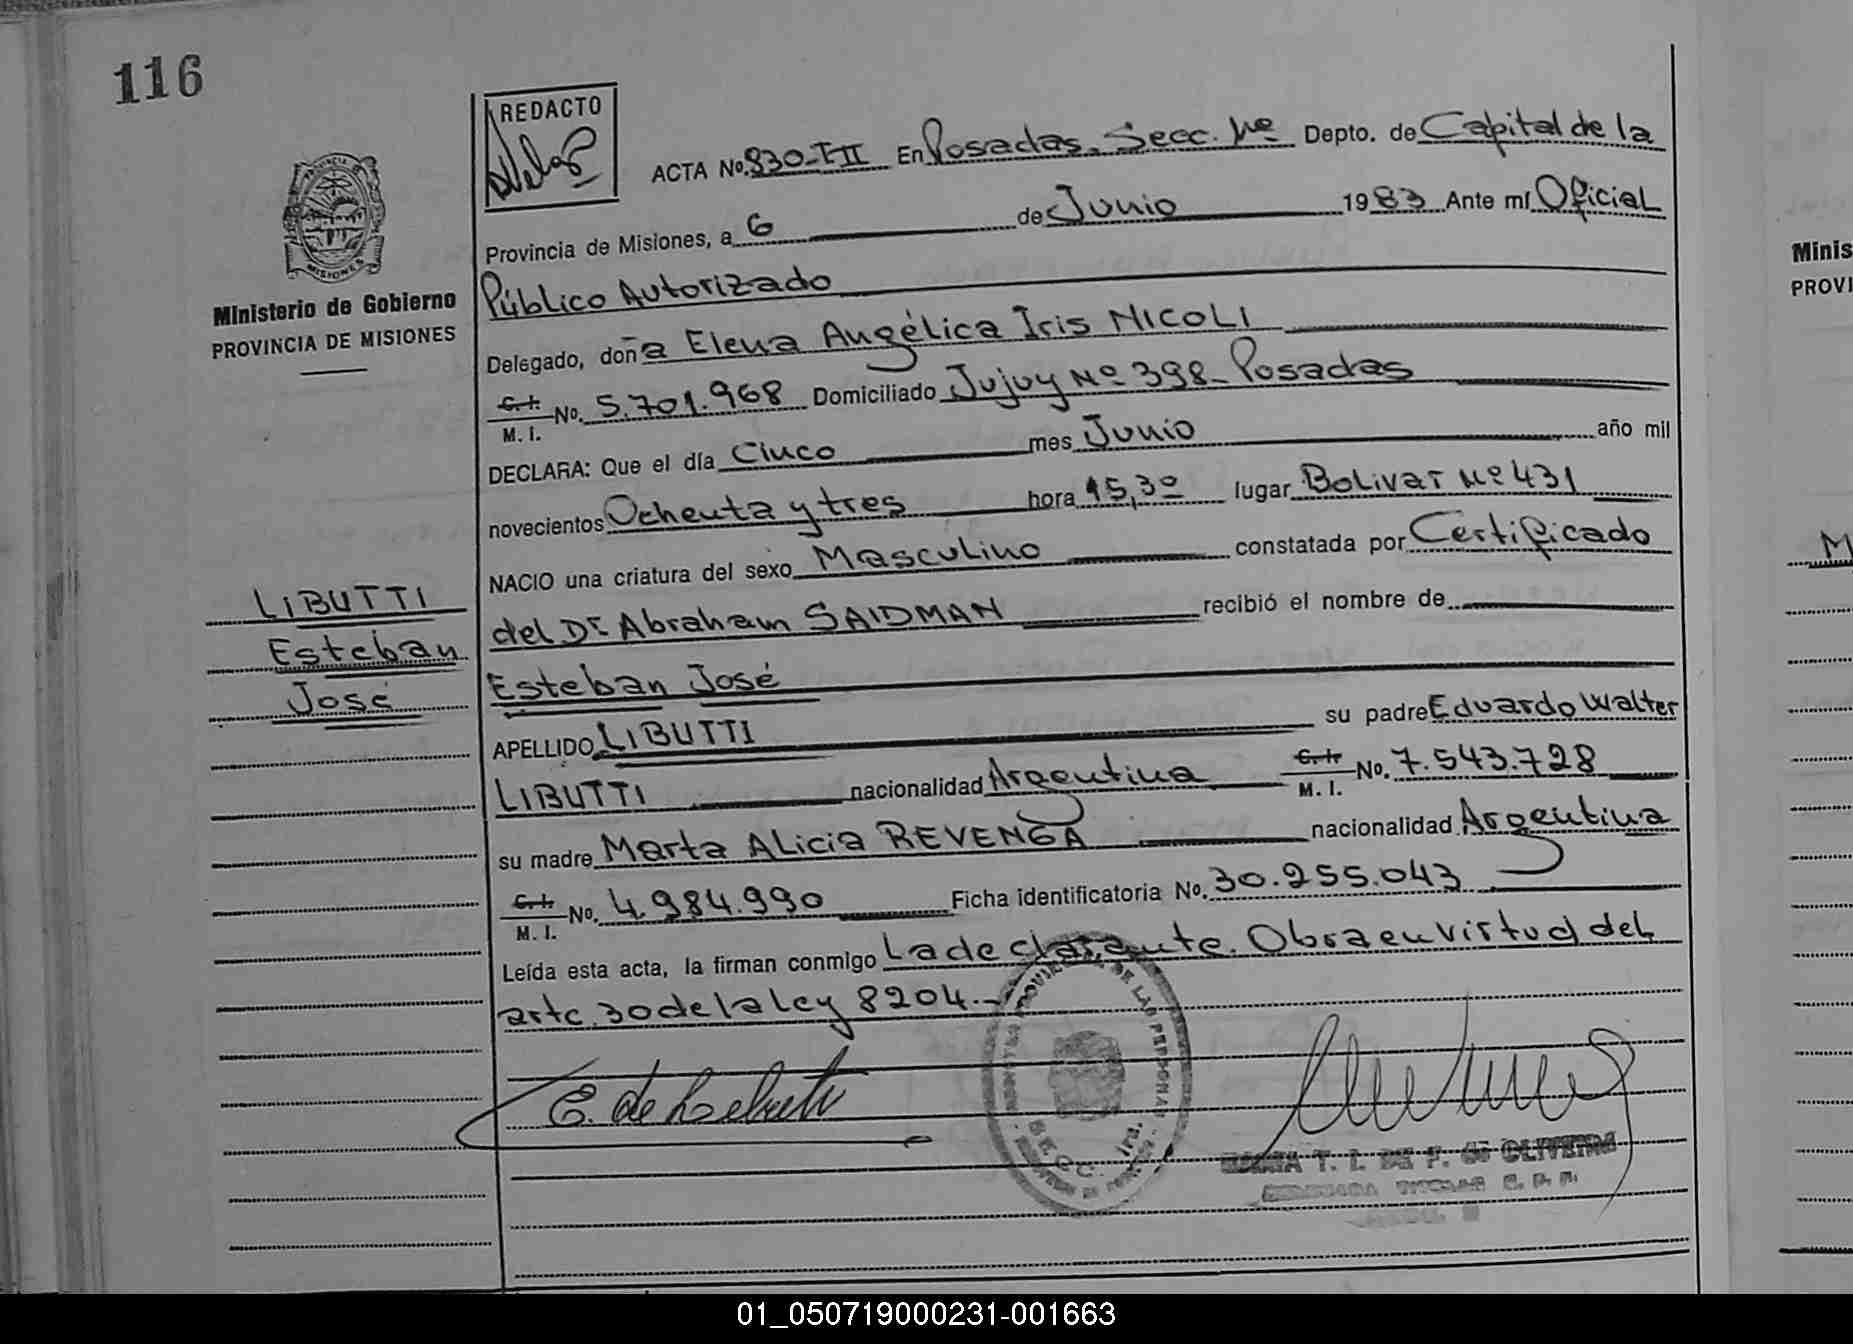 116
REDACTO
ACTA No. 830-TII En Posadas, Secc. Nº Depto. de Capital de la
Provincia de Misiones, a 6 de Junio 1983 Ante mí Oficial
Público Autorizado
Delegado, doña Elena Angélica Iris NICOLI
C. I. M. I. No. 5.701.968 Domiciliado Jujuy Nº 398 - Posadas
DECLARA: Que el día Cinco mes Junio año mil
novecientos Ochenta y tres hora 15,30 lugar Bolivar Nº 431
NACIO una criatura del sexo Masculino constatada por Certificado
del Dr Abraham SAIDMAN recibió el nombre de
Esteban José
APELLIDO LIBUTTI su padre Eduardo Walter
LIBUTTI nacionalidad Argentina C. I. M. I. No. 7.543.728
su madre Marta Alicia REVENGA nacionalidad Argentina
C. I. M. I. No. 4.984.990 Ficha identificatoria No. 30.255.043
Leída esta acta, la firman conmigo La declarante. Obra en virtud del
artc. 30 de la ley 8204.-
E. de Libutti
SECC. 1ra.
DE LAS PERSONAS
T. I. DE F. OLIVEIRA
MISIONES
Ministerio de Gobierno
PROVINCIA DE MISIONES
LIBUTTI
Esteban
José
Minis
PROVI
M
01_050719000231-001663